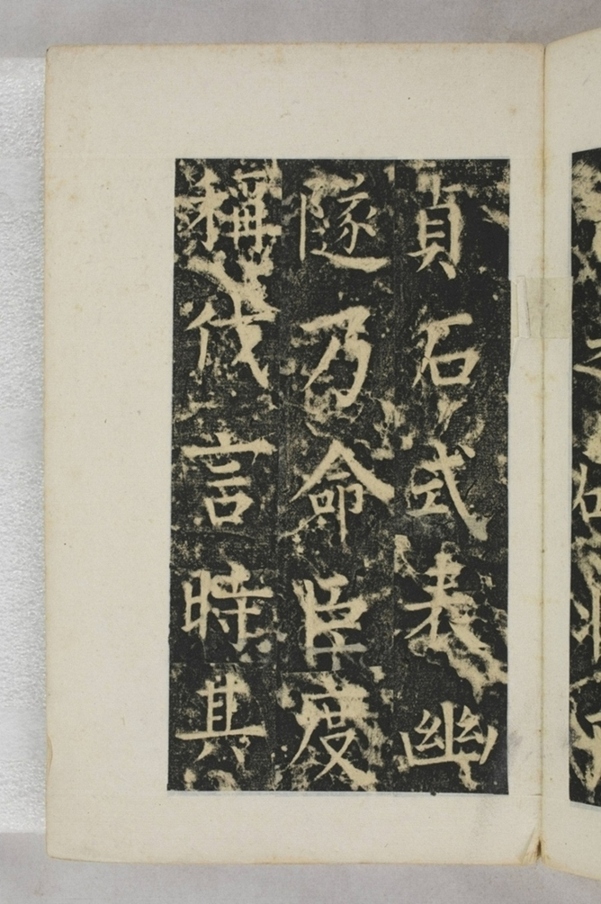 貞石式表幽
隧乃命臣度
稱伐言時其